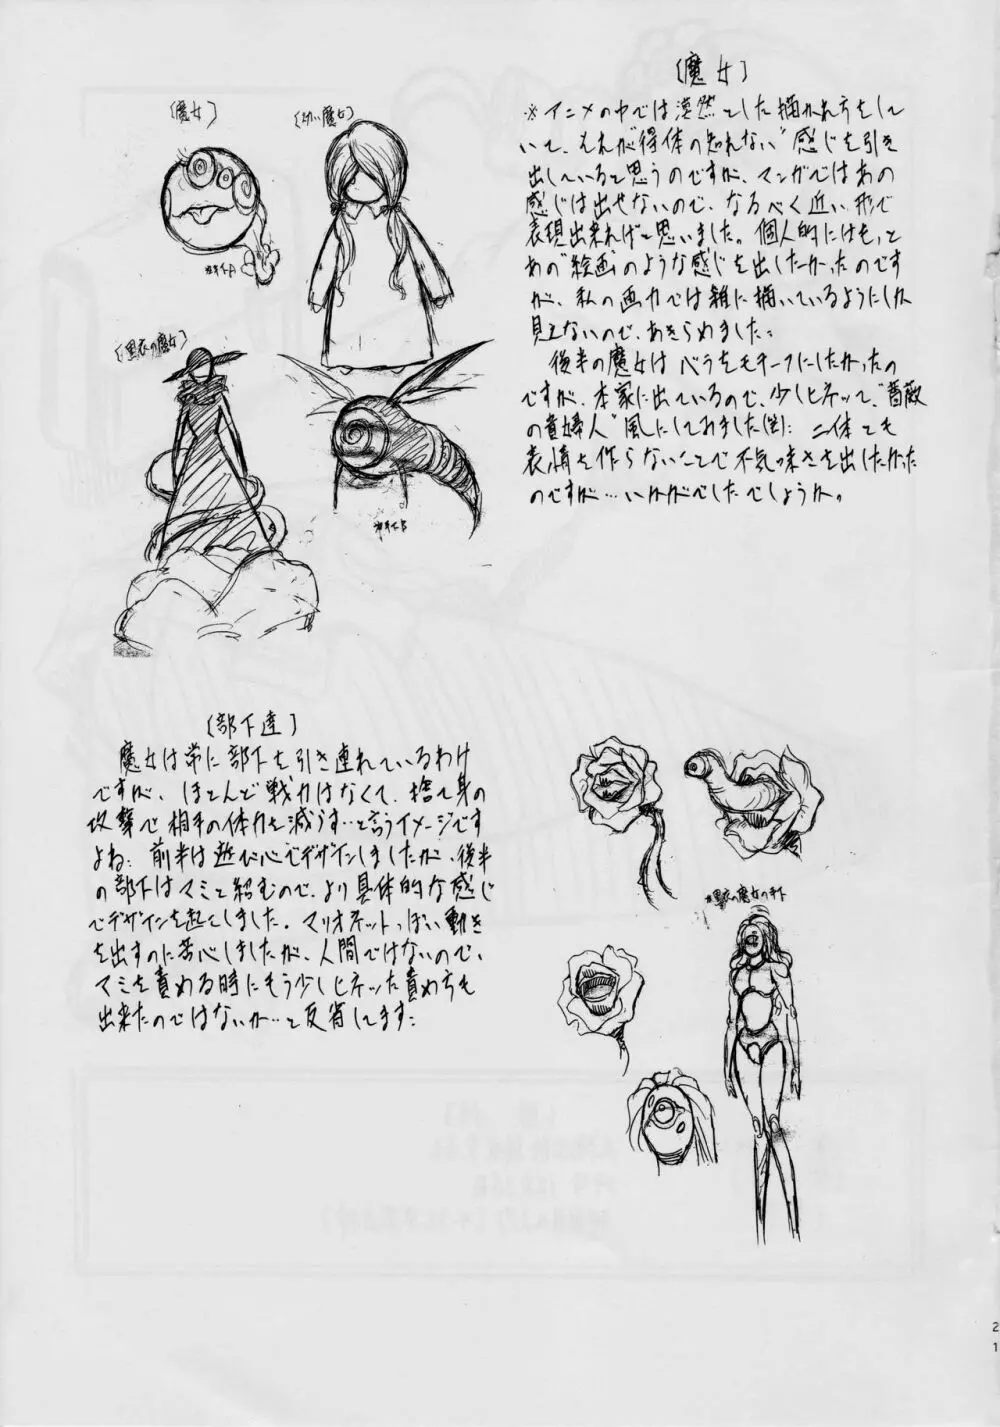 〔魔女〕
※アニメの中では漠然とした描かれ方をして
いて、それが得体の知れない”感じを引き
出していると思うのですが、マンガではあの
感じは出せないので、なるべく近い形で
表現出来ればと思いました。個人的にはもっと
あの”絵画”のような感じを出したかったのです
が、私の画力では雑に描いているようにしか
見えないので、あきらめました:
後半の魔女はベラをモチーフにしたかったの
ですが、本家に出ているので、少しヒネッて、”薔薇
の貴婦人”風にしてみました(笑): 二体とも
表情を作らないことで不気味さを出したかった
のですが…いかがでしたでしょうか。
〔魔女〕
〔幼い魔女〕
〔黒衣の魔女〕
〔部下達〕
魔女は常に部下を引き連れているわけ
ですが、ほとんど戦力はなくて、捨て身の
攻撃で相手の体力を減らす…と言うイメージです
よね: 前半は遊び心でデザインしましたが、後半
の部下はマミと絡むので、より具体的な感じ
でデザインを起こしました。マリオネットっぽい動き
を出すのに苦心しましたが、人間ではないので、
マミを責める時にもう少しヒネッた責め方も
出来たのではないか…と反省してます:
黒衣の魔女の手下
21